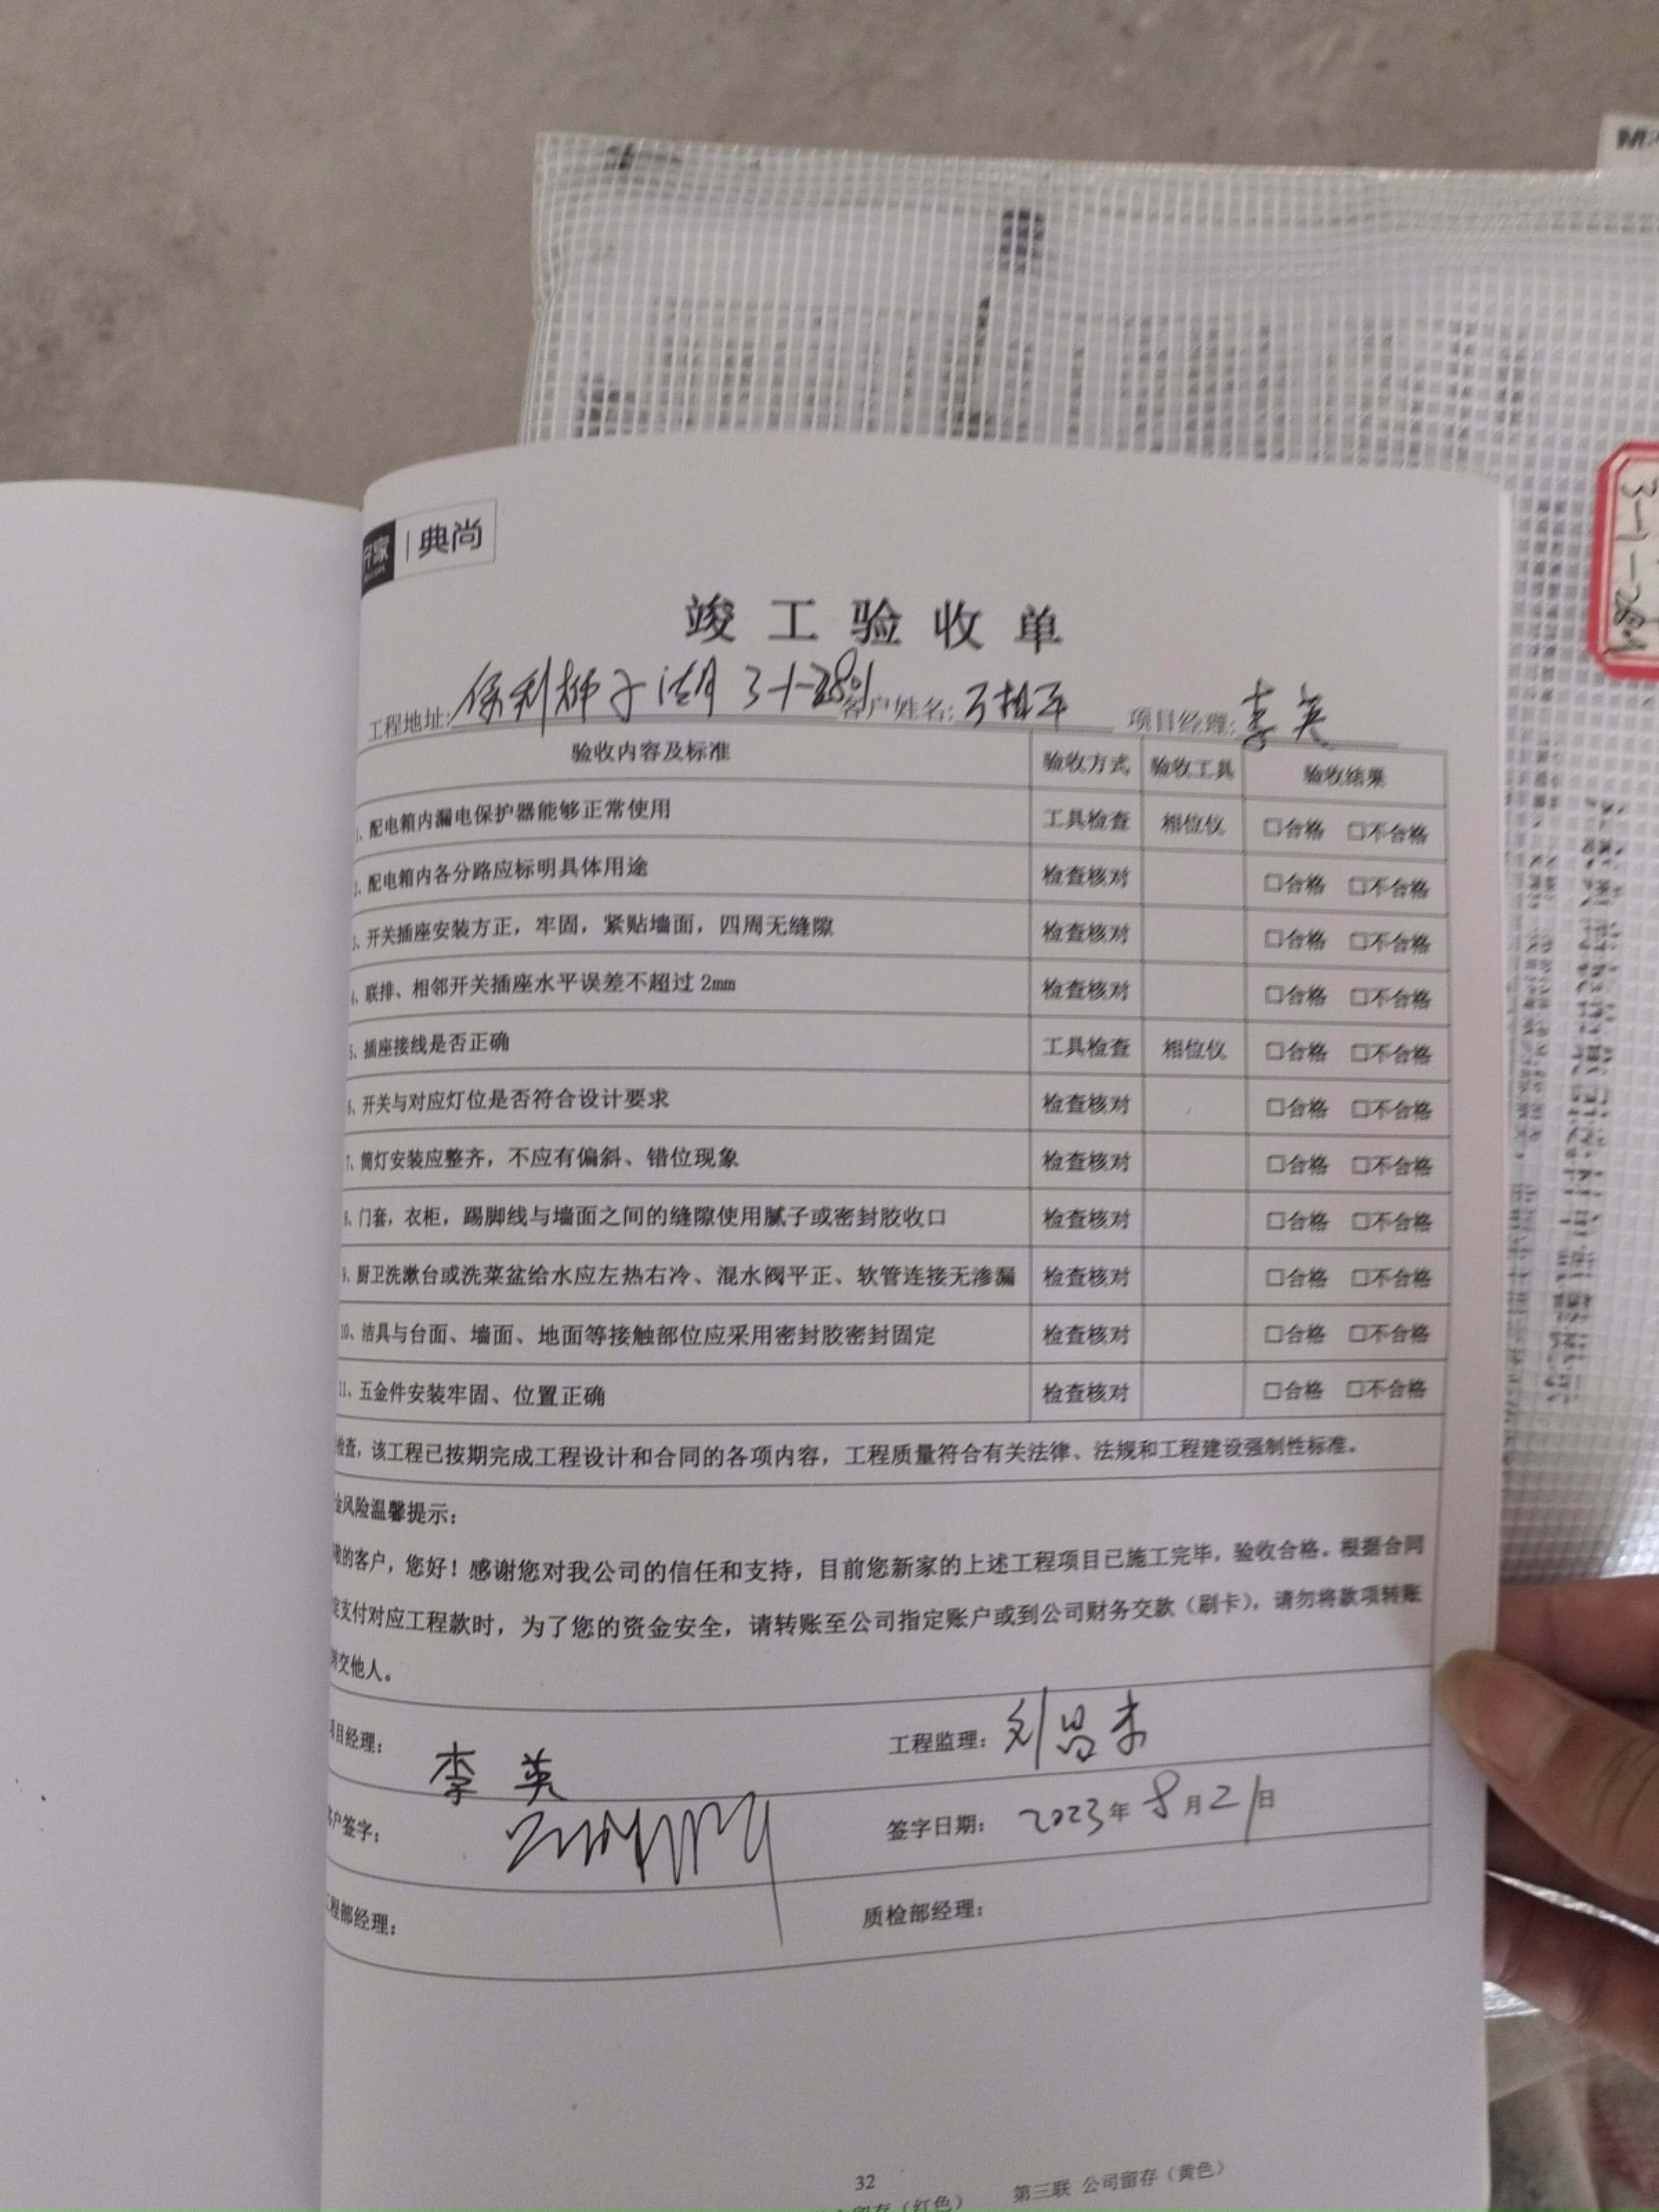 升家 | 典尚
竣工验收单
工程地址: 保利狮子湖 3-1-2801 客户姓名: 项目经理: 李英
验收内容及标准 验收方式 验收工具 验收结果
1、配电箱内漏电保护器能够正常使用 工具检查 相位仪 □合格 □不合格
2、配电箱内各分路应标明具体用途 检查核对 □合格 □不合格
3、开关插座安装方正，牢固，紧贴墙面，四周无缝隙 检查核对 □合格 □不合格
4、联排、相邻开关插座水平误差不超过 2mm 检查核对 □合格 □不合格
5、插座接线是否正确 工具检查 相位仪 □合格 □不合格
6、开关与对应灯位是否符合设计要求 检查核对 □合格 □不合格
7、筒灯安装应整齐，不应有偏斜、错位现象 检查核对 □合格 □不合格
8、门套，衣柜，踢脚线与墙面之间的缝隙使用腻子或密封胶收口 检查核对 □合格 □不合格
9、厨卫洗漱台或洗菜盆给水应左热右冷、混水阀平正、软管连接无渗漏 检查核对 □合格 □不合格
10、洁具与台面、墙面、地面等接触部位应采用密封胶密封固定 检查核对 □合格 □不合格
11、五金件安装牢固、位置正确 检查核对 □合格 □不合格
检查，该工程已按期完成工程设计和合同的各项内容，工程质量符合有关法律、法规和工程建设强制性标准。
金风险温馨提示：
敬的客户，您好！感谢您对我公司的信任和支持，目前您新家的上述工程项目已施工完毕，验收合格。根据合同
定支付对应工程款时，为了您的资金安全，请转账至公司指定账户或到公司财务交款（刷卡），请勿将款项转账
转交他人。
项目经理： 李英 工程监理： 刘昌杰
客户签字： 签字日期： 2023年8月21日
工程部经理： 质检部经理：
32
留存（红色） 第三联 公司留存（黄色）
3-1-2801